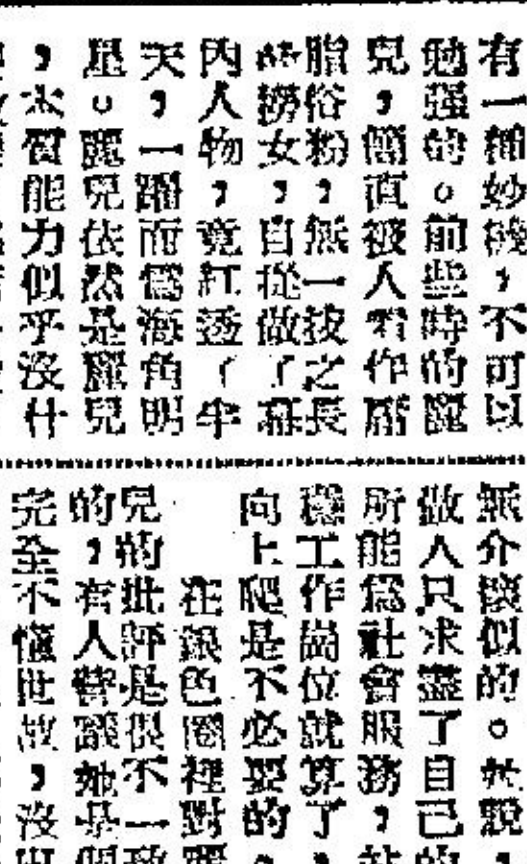 有一種妙機，不可以
勉强的。前些時的麗
兒，簡直被人看作庸
脂俗粉，無一技之長
些撈女，自從做了幕
內人物，竟紅透了半
天，一躍而爲海角明
星。麗兒依然是麗兒
，太質能力似乎沒什
無介懷似的。她說，
做人只求盡了自己的
所能爲社會服務，站
穩工作崗位就算了，
向上爬是不必要的。
在銀色圈裡對麗
兒的批評是很不一致
的，有人譽議她是個
完全不懂世故，沒出